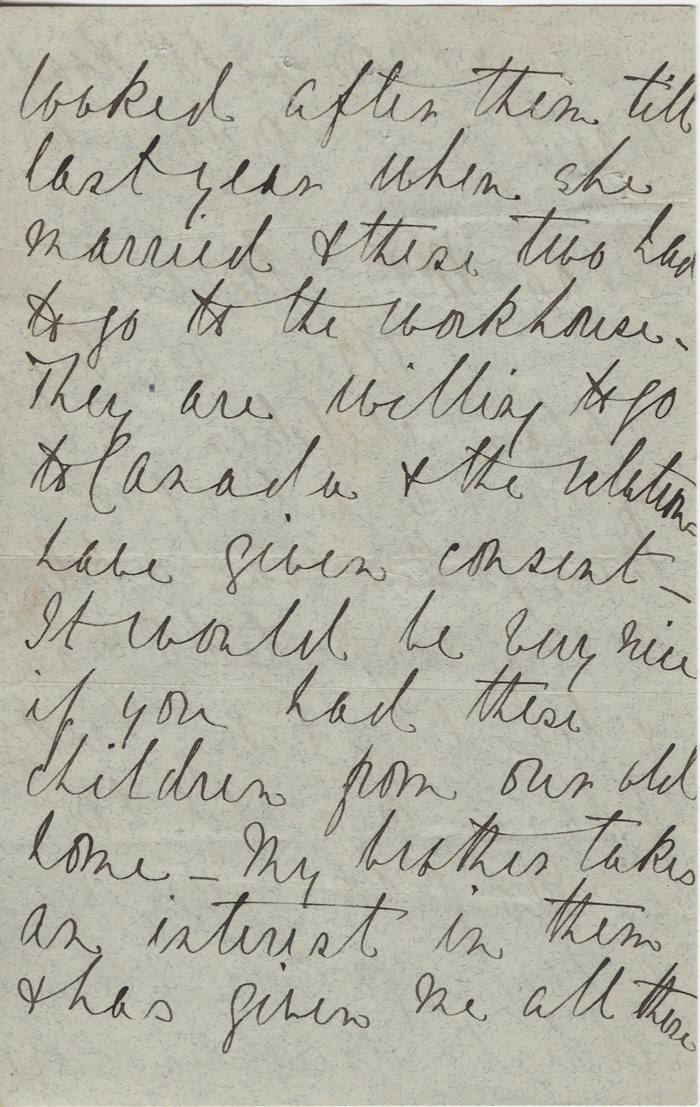 looked after them till
last year when she
married & these two had
to go to the workhouse.
They are willing to go
to Canada & the relations
have given consent –
It would be very nice
if you had these
children from our old
home – My brother takes
an interest in them
& has given me all these